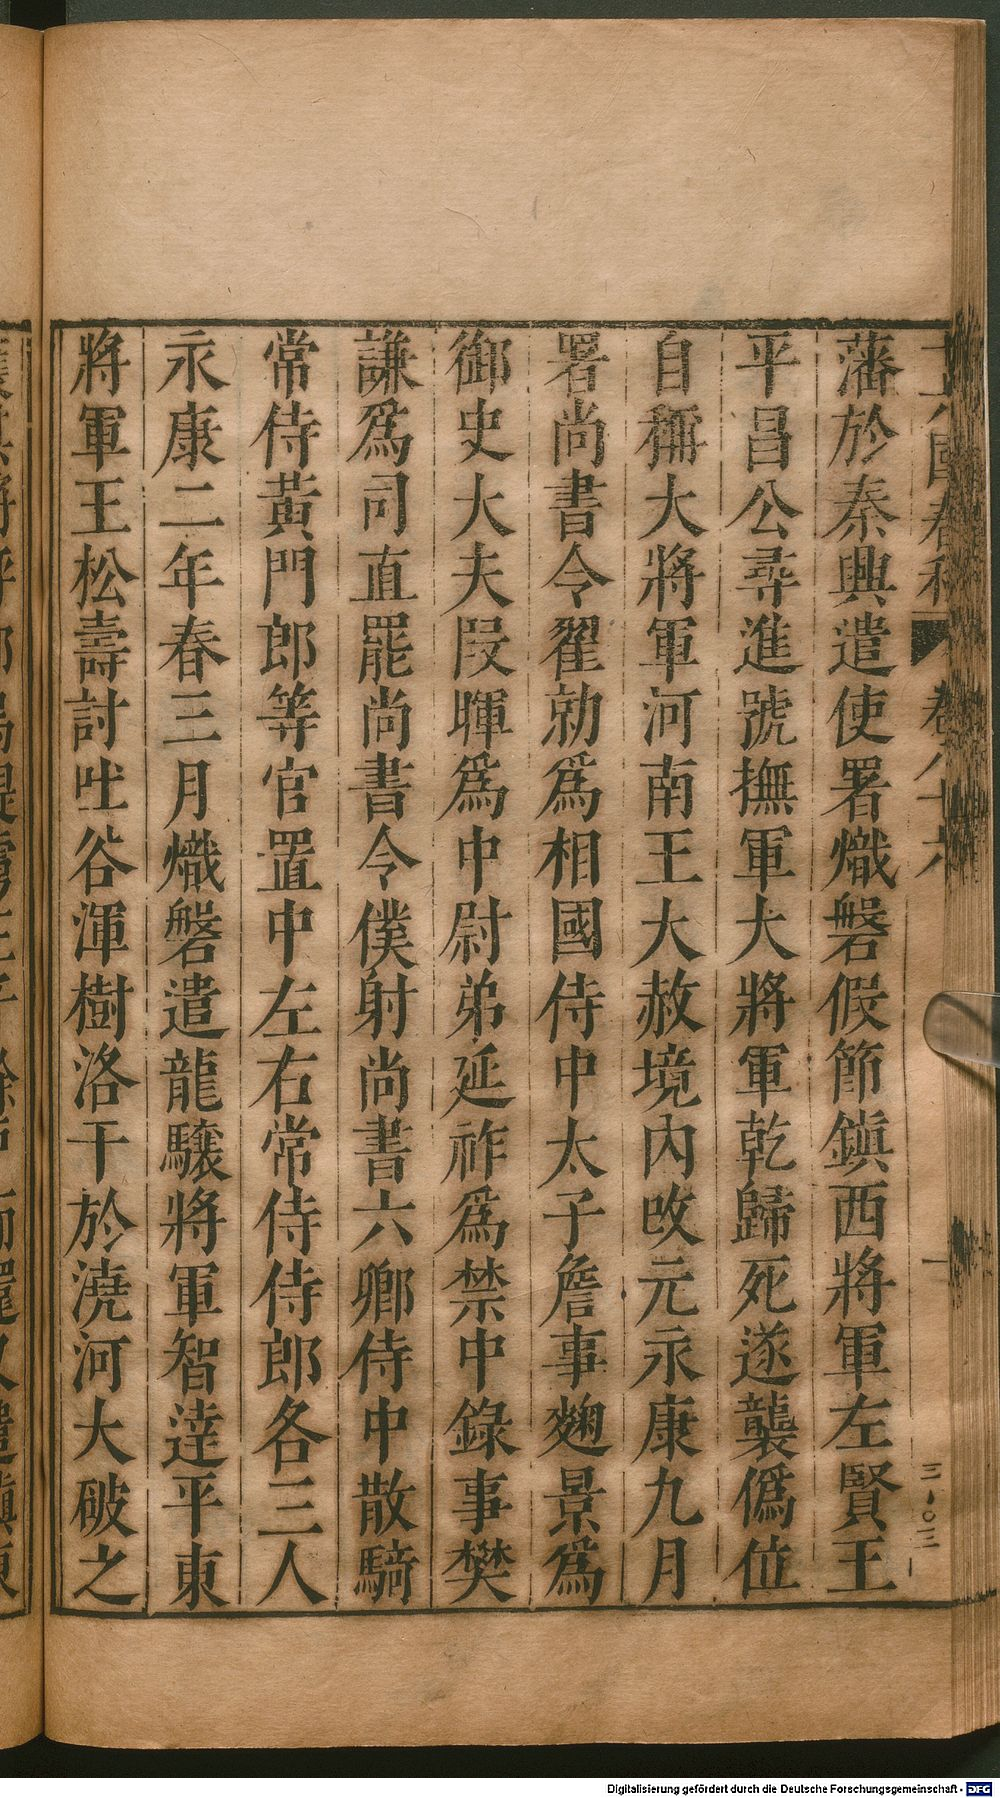 藩於秦興遣使署熾磐假節鎮西將軍左賢王
平昌公尋進號撫軍大將軍乾歸死遂襲僞位
自稱大將軍河南王大赦境內改元永康九月
署尚書令翟勍爲相國侍中太子詹事麹景爲
御史大夫叚暉爲中尉弟延祚爲禁中錄事樊
謙爲司直罷尚書令僕射尚書六卿侍中散騎
常侍黃門郎等官置中左右常侍侍郎各三人
永康二年春三月熾磐遣龍驤將軍智逹平東
將軍王松壽討吐谷渾樹洛干於澆河大破之
Digitalisierung gefördert durch die Deutsche Forschungsgemeinschaft - DFG